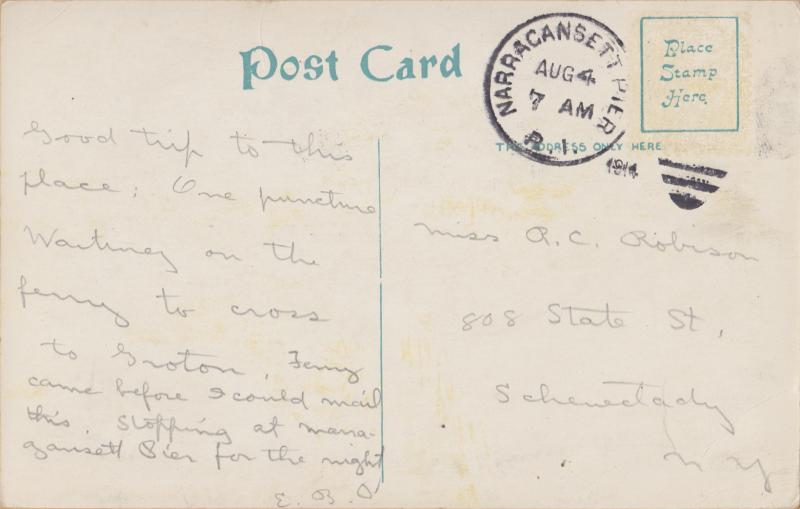 Post Card
NARRAGANSETT PIER
AUG 4
7 AM
R.I.
1914
Place
Stamp
Here
THE ADDRESS ONLY HERE
Good trip to this
place; One puncture
Waiting on the
ferry to cross
to Groton, Ferry
came before I could mail
this. Stopping at Narra-
gansett Pier for the night
E. B.
Miss R. C. Robison
808 State St,
Schenectady
N Y